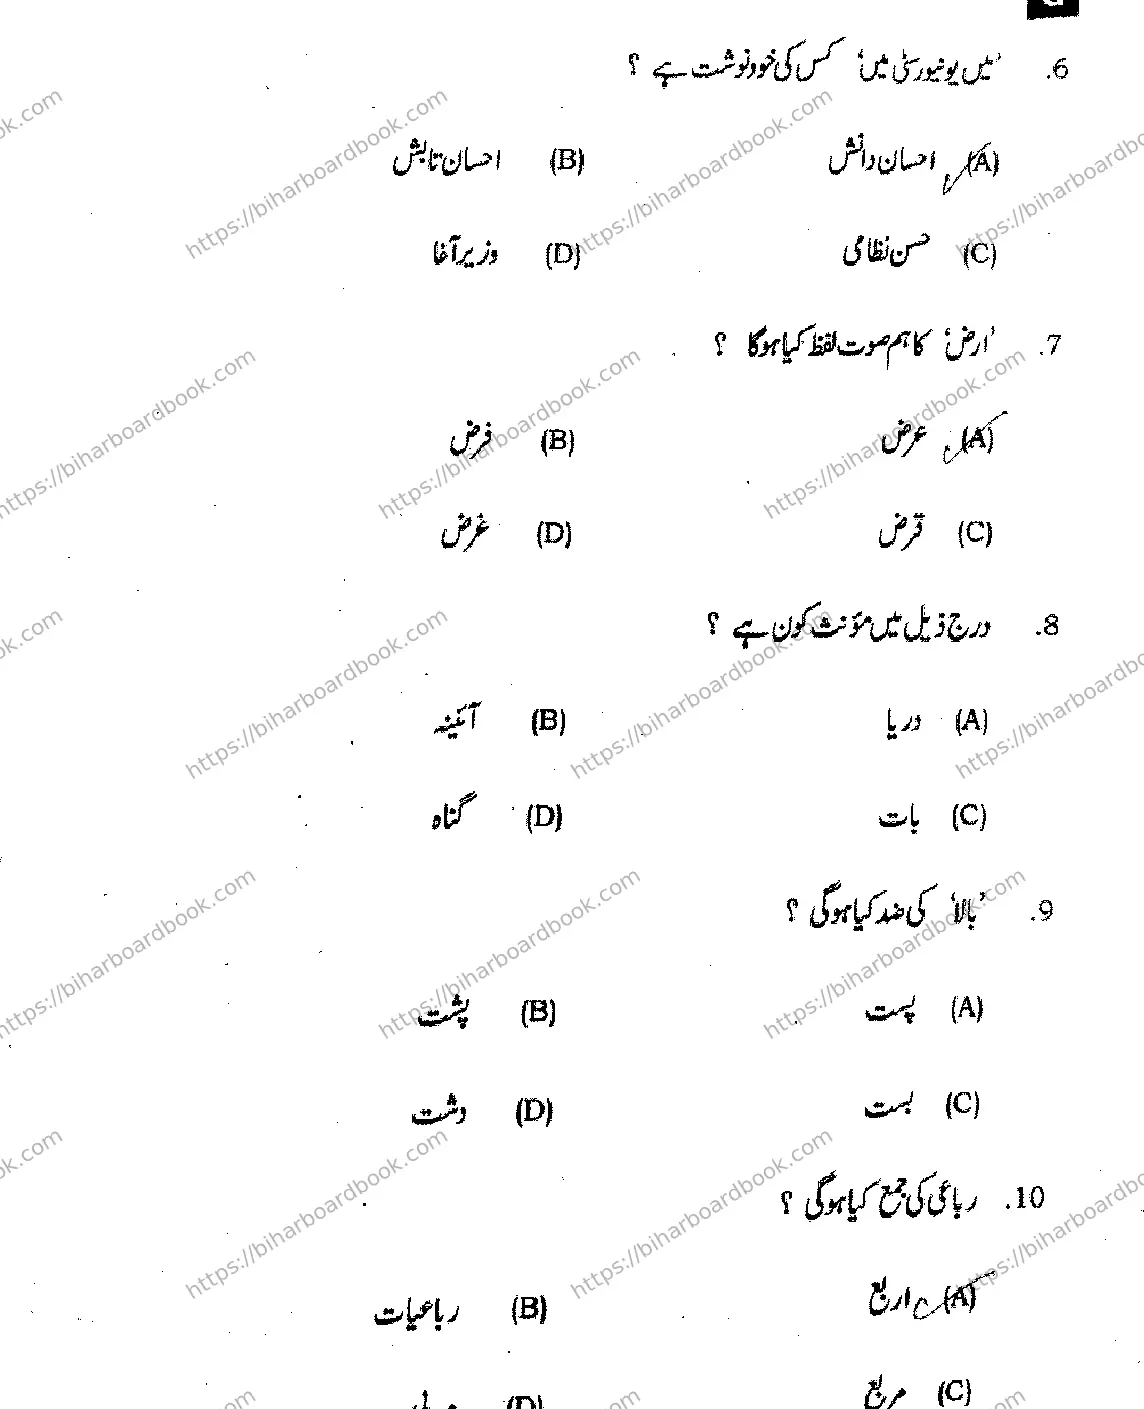 6. 'میں یونیورسٹی میں' کس کی خودنوشت ہے ؟
(A) احسان دانش (B) احسان تابش
(C) حسن نظامی (D) وزیر آغا
7. 'ارض' کا ہم صوت لفظ کیا ہوگا ؟
(A) عرض (B) فرض
(C) قرض (D) غرض
8. درج ذیل میں مؤنث کون ہے ؟
(A) دریا (B) آئینہ
(C) بات (D) گناہ
9. 'بالا' کی ضد کیا ہوگی ؟
(A) پست (B) پشت
(C) بست (D) دشت
10. رباعی کی جمع کیا ہوگی ؟
(A) اربع (B) رباعیات
(C) مربع (D)
https://biharboardbook.com